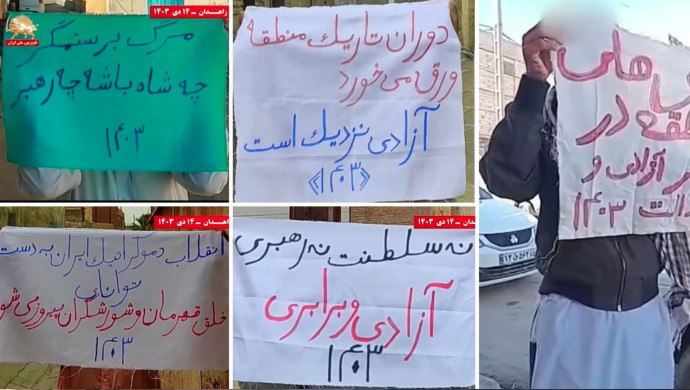 زاهــدان – ۱۴ دی ۱۴۰۳
تلویزیون ملی ایران
مرگ بر ستمگر
چه شاه باشه چه رهبر
۱۴۰۳
دوران تاریک منطقه
ورق می‌خورد
آزادی نزدیک است
《۱۴۰۳》
هلی
در
آزادی و
۱۴۰۳
زاهــدان – ۱۴ دی ۱۴۰۳
انقلاب دموکراتیک ایران به دست
توانای
خلق قهرمان و شورشگران پیروز می شو
۱۴۰۳
زاهــدان – ۱۴ دی ۱۴۰۳
نه سلطنت نه رهبری
آزادی و برابری
۱۴۰۳